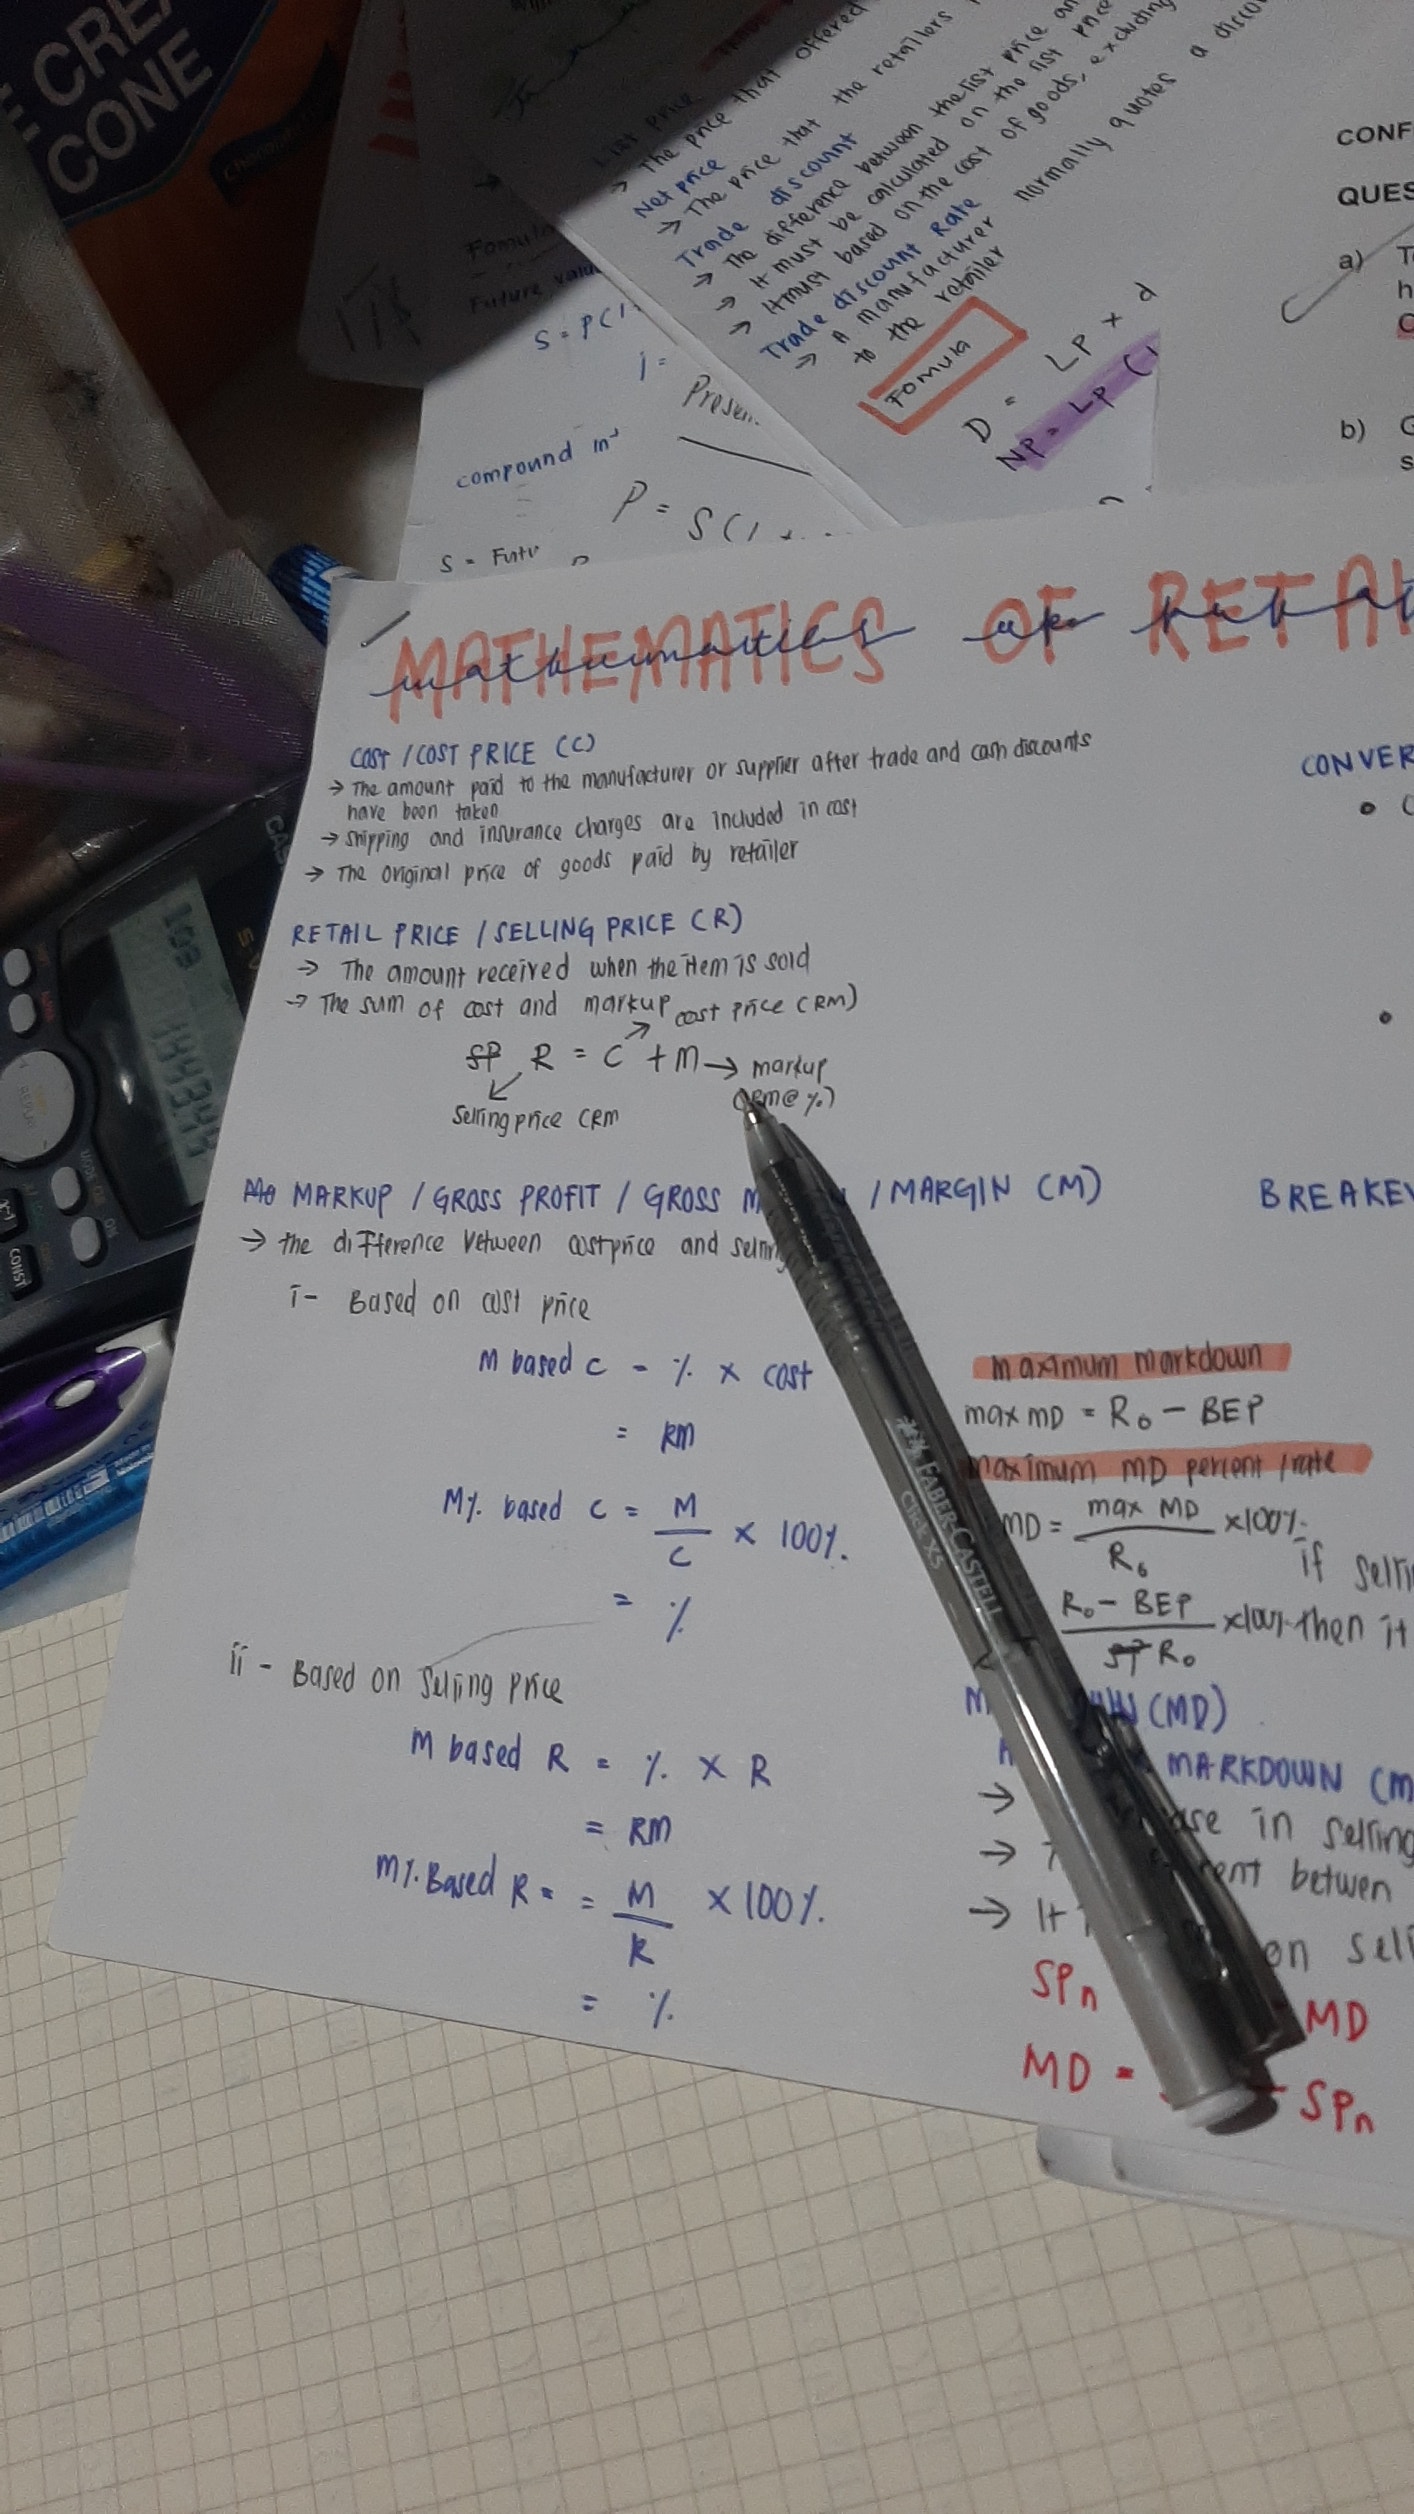 CREA
CONE
List price
→ The price that offered
Net price
→ The price that the retailers
Trade discount
→ The difference between the list price an
→ It must be calculated on the list price
→ It must based on the cost of goods, excluding
Trade discount Rate
→ A manufacturer normally quotes a disco
to the retailer
Fomula
D = LP x d
NP = LP (1
CONF
QUES
a)
b)
Fomula
Future value
S = P(1
i =
Presen
compound in
P = S(1
S = Futu
MATHEMATICS OF RETAI
mathematics
COST / COST PRICE (C)
→ The amount paid to the manufacturer or supplier after trade and cash discounts
have been taken
→ Shipping and insurance charges are included in cost
→ The original price of goods paid by retailer
RETAIL PRICE / SELLING PRICE (R)
→ The amount received when the item is sold
→ The sum of cost and markup
cost price (RM)
SP R = C + M → markup
(RM@%)
Selling price (RM
MARKUP / GROSS PROFIT / GROSS M / MARGIN (M)
→ the difference between costprice and selling
i- Based on cost price
M based C = % x cost
= RM
M% based C = M/C x 100%.
= %
ii - Based on selling price
M based R = % x R
= RM
M% Based R = = M/R x 100%.
= %
CONVER
BREAKEV
maximum markdown
max MD = Ro - BEP
maximum MD percent / rate
MD = max MD/Ro x100%
if sellin
Ro - BEP/SP Ro x100% then it
(MD)
MARKDOWN (M
→ ase in selling
→ ent betwen
→ It on sell
SPn MD
MD = - SPn
FABER-CASTELL
Click X5
CONST
ON